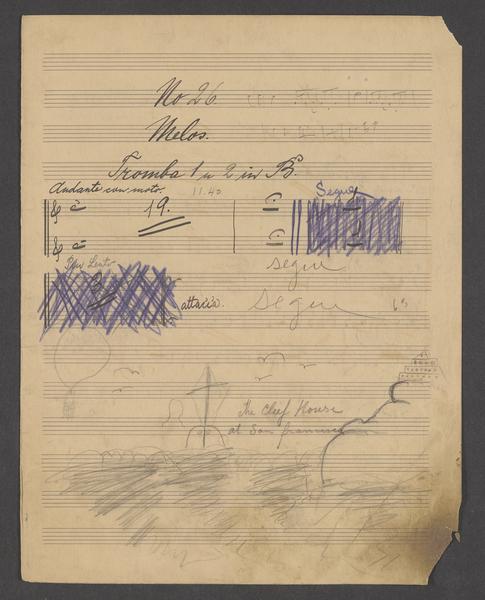 No 26.
Melos.
Tromba 1 u 2 in B.
Andante con moto. 11.40 Segue
19.
Piu Lento segue
3
attacca. Segue
The Cleef House
at San francisco